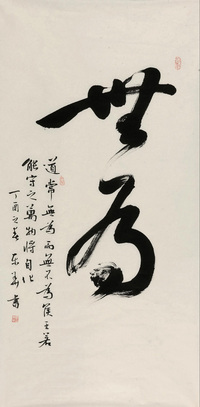 無為
道常無為而無不為侯王若
能守之萬物將自化
丁酉之春